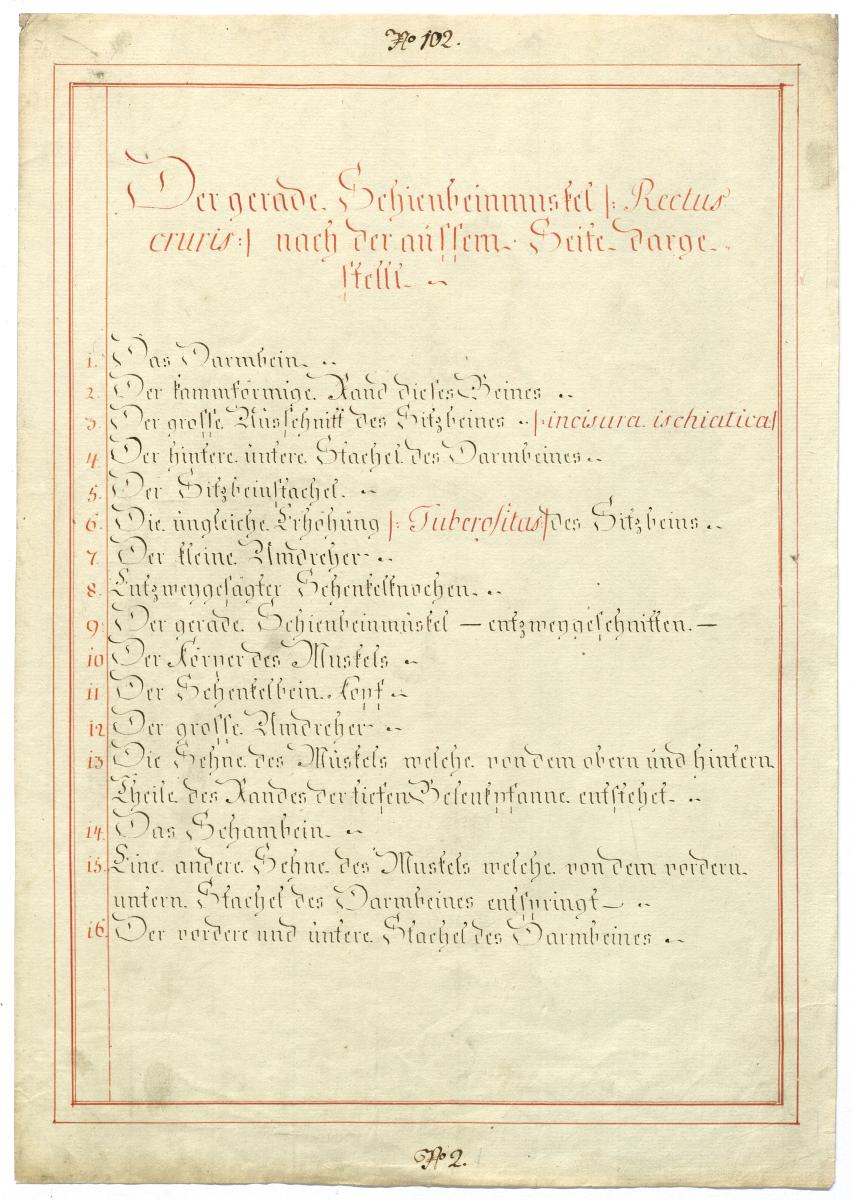 No 102.
Der gerade Schienbeinmuskel |: Rectus
cruris :| nach der aüssern Seite darge-
stellt
1. Das Darmbein
2. Der kammförmige Rand dieses Beines
3. Der grosse Ausschnitt des Sitzbeines |: incisura ischiatica|
4. Der hintere üntere Stachel des Darmbeines
5. Der Sitzbeinstachel
6. Die üngleiche Erhöhüng |: Tuberositas :| des Sitzbeins
7. Der kleine Umdreher
8. Entzweygesägter Schenkelknochen
9. Der gerade Schienbeinmüskel — entzweygeschnitten. —
10 Der Körper des Muskels
11 Der Schenkelbein Kopf
12 Der grosse Umdreher
13 Die Sehne des Müskels welche von dem obern ünd hintern
Theile des Randes der tiefen Beckenpfanne entstehet
14. Das Schambein
15. Eine andere Sehne des Muskels welche von dem vordern
untern Stachel des Darmbeines entspringt
16. Der vordere und üntere Stachel des Darmbeines
No 2.